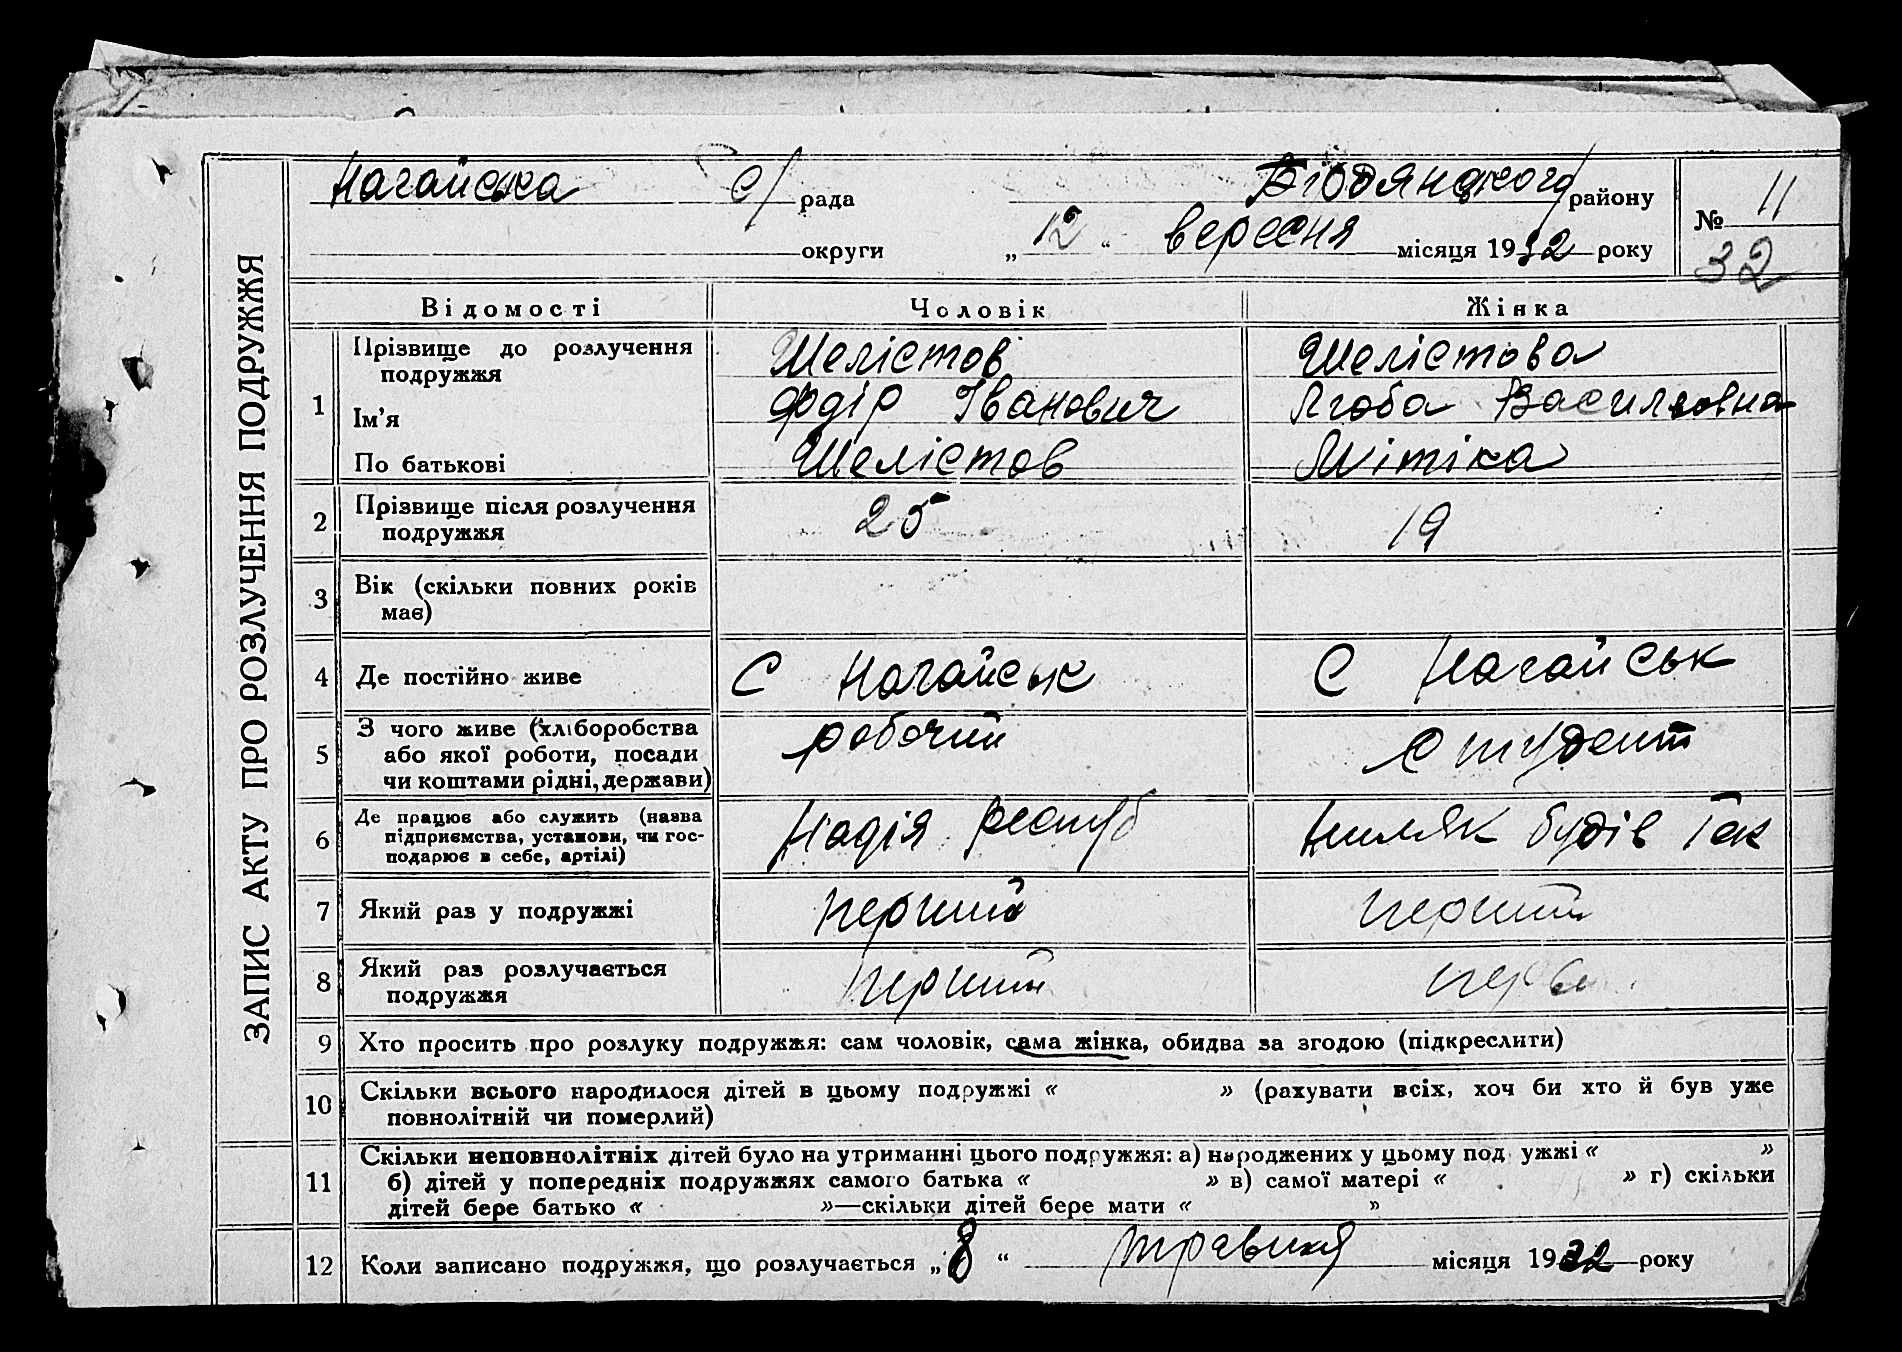 ЗАПИС АКТУ ПРО РОЗЛУЧЕННЯ ПОДРУЖЖЯ
Нагайська с/рада Бірдянцкого району № 11
округи „12“ вересня місяця 1932 року 32
Відомості Чоловік Жінка
1 Прізвище до розлучення Шелістов Шелістова
подружжя
Ім'я Фдір Іванович Люба Васильовна
По батькові Шелістов Мітіка
2 Прізвище після розлучення 25 19
подружжя
3 Вік (скільки повних років
має)
4 Де постійно живе С Нагайськ С Нагайськ
5 З чого живе (хліборобства робочий студент
або якої роботи, посади
чи коштами рідні, держави)
6 Де працює або служить (назва Надія респуб будів
підприємства, установи, чи гос-
подарює в себе, артілі)
7 Який раз у подружжі перший перший
8 Який раз розлучається перший
подружжя
9 Хто просить про розлуку подружжя: сам чоловік, сама жінка, обидва за згодою (підкреслити)
10 Скільки всього народилося дітей в цьому подружжі « » (рахувати всіх, хоч би хто й був уже
повнолітній чи померлий)
11 Скільки неповнолітніх дітей було на утриманні цього подружжя: а) народжених у цьому под ужжі « »
б) дітей у попередніх подружжях самого батька « » в) самої матері « » г) скільки
дітей бере батько « »—скільки дітей бере мати « »
12 Коли записано подружжя, що розлучається „8“ травня місяця 1932 року